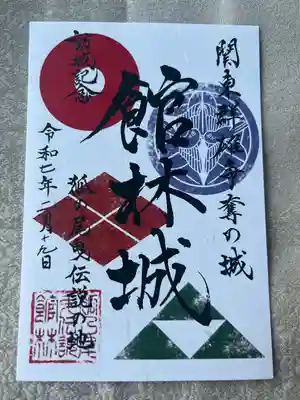 関東群雄争奪の城
館林城
狐の尾曳伝説の地
訪城記念
令和七年二月十九日
館林